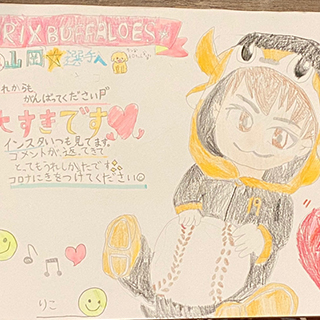 ORIX BUFFALOES
山岡☆選手へ
これからも
がんばってください
大すきです
インスタいつも見てます。
コメントが返ってきて
とってもうれしかったです
コロナにきをつけてください
19
りこ